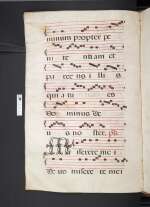 minum propter pe
ni te ntiam et
pa rce no i lli s
qui a tu es
do minus de
u s no ster. ps.
Miserere mei
De us misere re me i